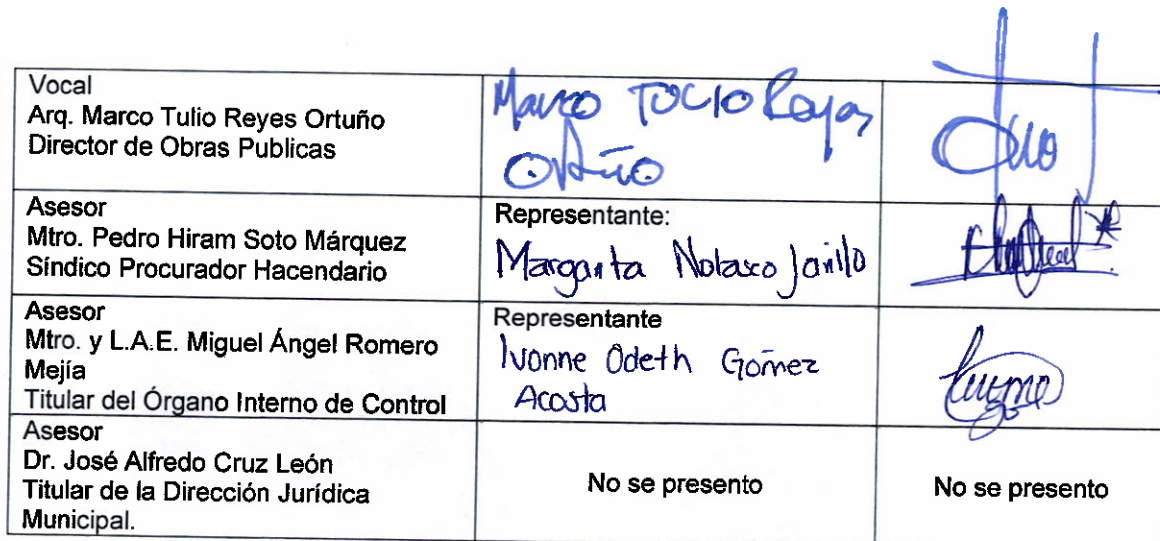 Vocal
Arq. Marco Tulio Reyes Ortuño
Director de Obras Publicas
Marco TULIO Reyes
Ortuño
Asesor
Mtro. Pedro Hiram Soto Márquez
Síndico Procurador Hacendario
Representante:
Margarita Nolasco Jarillo
Asesor
Mtro. y L.A.E. Miguel Ángel Romero
Mejía
Titular del Órgano Interno de Control
Representante
Ivonne Odeth Gómez
Acosta
Asesor
Dr. José Alfredo Cruz León
Titular de la Dirección Jurídica
Municipal.
No se presento
No se presento